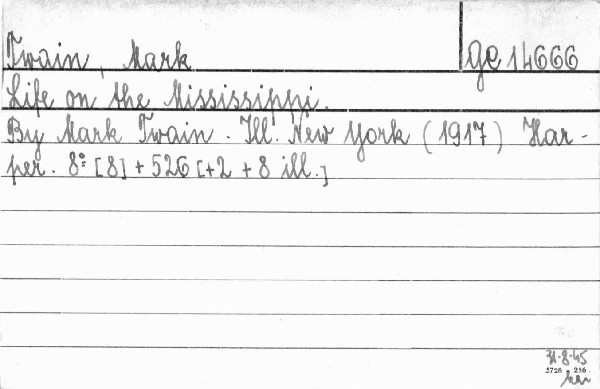 Twain, Mark
Ge 14666
Life on the Mississippi.
By Mark Twain. Ill. New York (1917) Har-
per. 8° [8] + 526 [+2 + 8 ill.]
31-8-45
5728 - 256